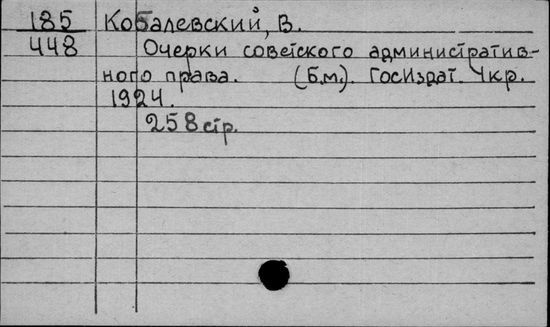 185 Кобалевский, В.
448 Очерки советского административ-
ного права. (б.м.). Госиздат. Укр.
1924.
258 стр.